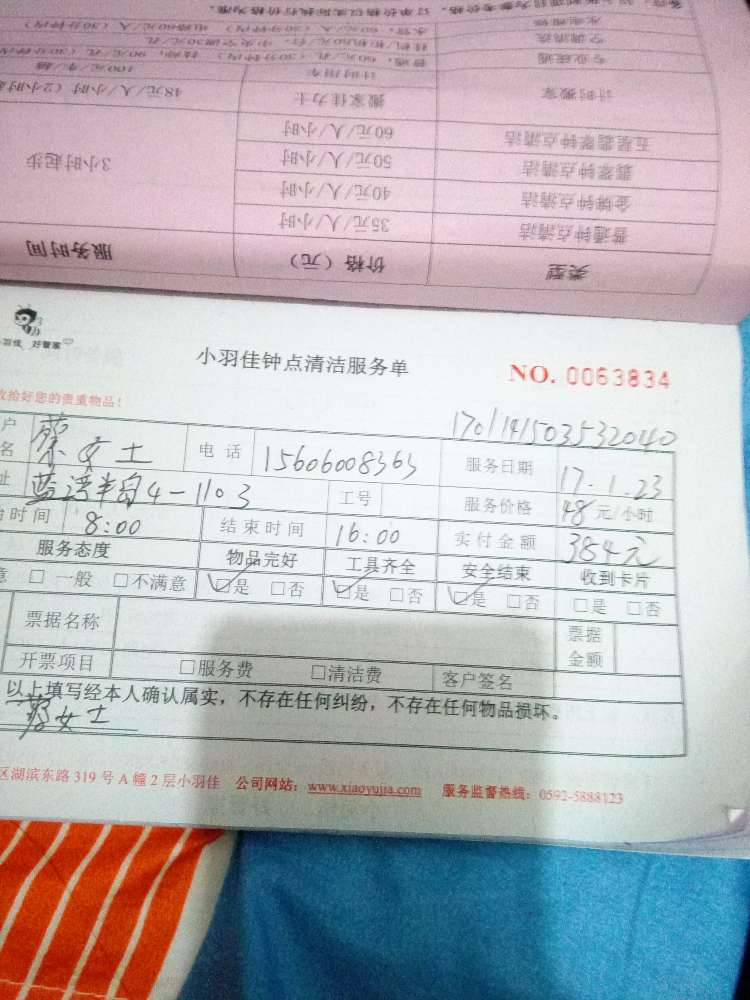 类型 价格（元） 服务时间
普通钟点清洁 35元/人/小时
金牌钟点清洁 40元/人/小时
翡翠钟点清洁 50元/人/小时 3小时起步
五星翡翠钟点清洁 60元/人/小时
计时搬家 搬家佳力士 48元/人/小时（2小时起
计时用车 100元/车/趟
专业疏通 普通，60元/人（30分钟内）
空调清洗
水电维修
小羽佳 好管家
小羽佳钟点清洁服务单
NO. 0063834
收拾好您的贵重物品！
17011415035532040
户名 蔡女士 电话 15606008363 服务日期 17.1.23
址 蓝湾半岛4-1103 工号 服务价格 48元/小时
始时间 8:00 结束时间 16:00 实付金额 384元
服务态度 物品完好 工具齐全 安全结束 收到卡片
意 □一般 □不满意 ☑是 □否 ☑是 □否 ☑是 □否 □是 □否
票据名称 票据金额
开票项目 □服务费 □清洁费 客户签名
以上填写经本人确认属实，不存在任何纠纷，不存在任何物品损坏。
蔡女士
区湖滨东路319号A幢2层小羽佳 公司网站：www.xiaoyujia.com 服务监督热线：0592-5888123